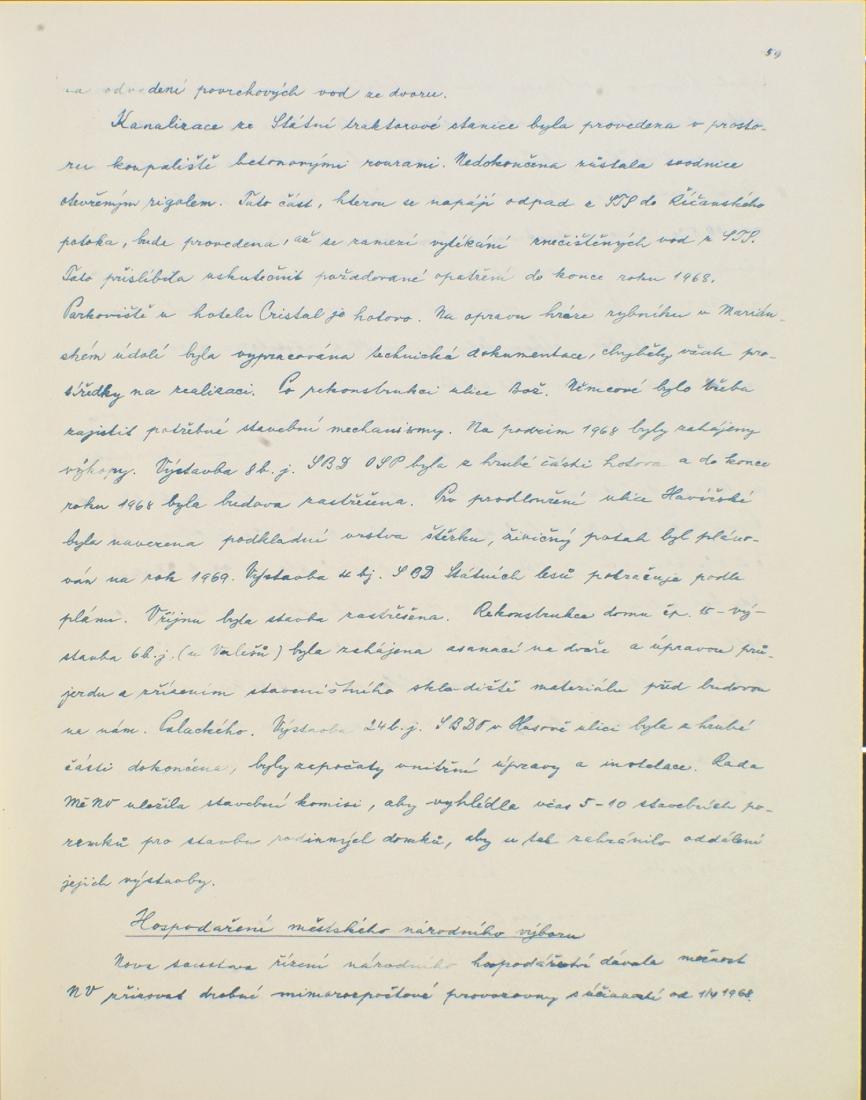 59
na odvedení povrchových vod ze dvoru.
Kanalizace ze Státní traktorové stanice byla provedena v prosto-
ru koupaliště betonovými rourami. Nedokončena zůstala svodnice
otevřeným rigolem. Tato část, kterou se napájí odpad z STS do Říčanského
potoka, bude provedena, až se zamezí vytékání znečištěných vod z STS.
Tato přislíbila uskutečnit požadované opatření do konce roku 1968.
Parkoviště u hotelu Cristal je hotovo. Na opravu hráze rybníku v Marián-
ském údolí byla vypracována technická dokumentace, chyběly však pro-
středky na realizaci. Po rekonstrukci ulice Bož. Němcové bylo třeba
zajistit potřebné stavební mechanismy. Na podzim 1968 byly zahájeny
výkopy. Výstavba 8 b. j. SBD OSP byla z hrubé části hotova a do konce
roku 1968 byla budova zastřešena. Pro prodloužení ulice Havířské
byla navezena podkladní vrstva štěrku, živičný potah byl pláno-
ván na rok 1969. Výstavba 4 bj. SBD Státních lesů pokračuje podle
plánu. V říjnu byla stavba zastřešena. Rekonstrukce domu čp. 15 - vý-
stavba 6 b. j. (u ) byla zahájena asanací na dvoře a úpravou prů-
jezdu a zřízením staveništního skladiště materiálu před budovou
na nám. Palackého. Výstavba 24 b. j. SBD v Husově ulici byla z hrubé
části dokončena, byly započaty vnitřní úpravy a instalace. Rada
MěNV uložila stavební komisi, aby vyhlédla včas 5-10 stavebních po-
zemků pro stavbu rodinných domků, aby se tak zabránilo oddálení
jejich výstavby.
Hospodaření městského národního výboru
Nova soustava řízení národního hospodářství dávala možnost
NV zřizovat drobné mimorozpočtové provozovny s účinností od 1/4 1968.